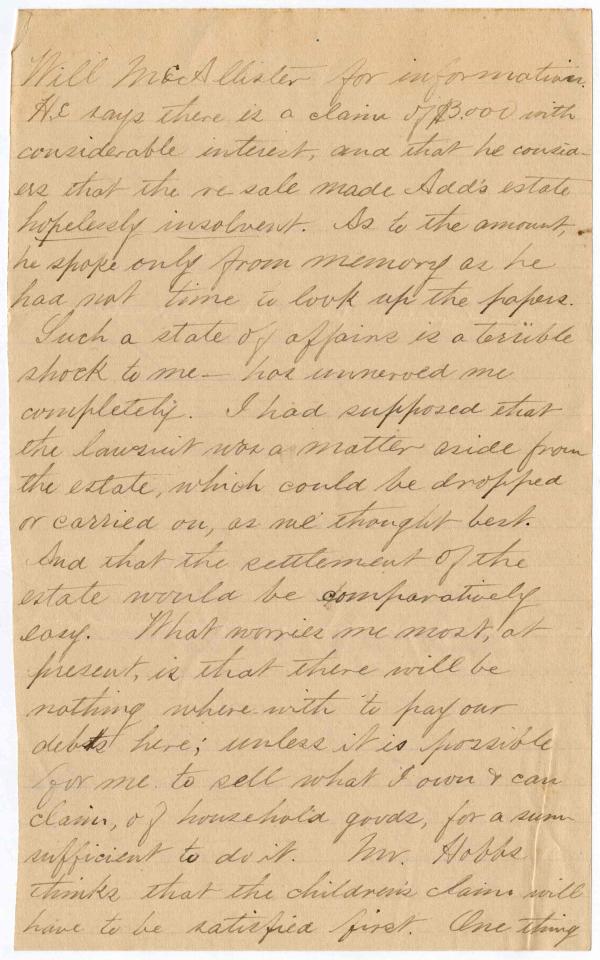 Will McAllister for information.
He says there is a claim of $3.000 with
considerable interest, and that he consid-
ers that the re-sale made Add's estate
hopelessly insolvent. As to the amount,
he spoke only from memory as he
had not time to look up the papers.
Such a state of affairs is a terrible
shock to me — has unnerved me
completely. I had supposed that
the lawsuit was a matter aside from
the estate, which could be dropped
or carried on, as we thought best.
And that the settlement of the
estate would be comparatively
easy. What worries me most, at
present, is that there will be
nothing where-with to pay our
debts here; unless it is possible
for me to sell what I own & can
claim, of household goods, for a sum
sufficient to do it. Mr. Hobbs
thinks that the children's claim will
have to be satisfied first. One thing